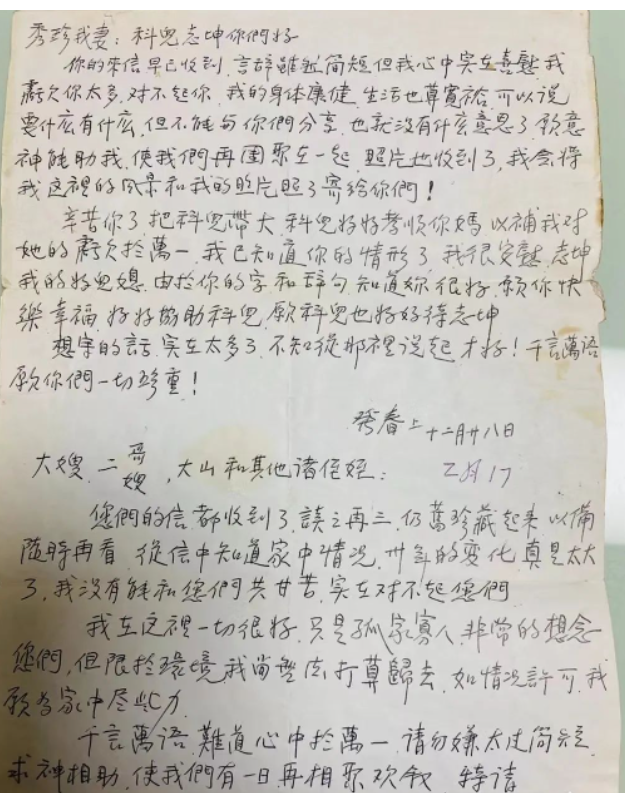 秀珍我妻：科兒志坤你們好
你的來信早已收到，言辞雖然简短但我心中实在喜慰，我
虧欠你太多，对不起你，我的身体康健，生活也算寬裕，可以说
要什么有什么，但不能与你們分享，也就没有什么意思了，願意
神能助我，使我們再團聚在一起，照片也收到了，我会将
我这裡的风景和我的照片照了寄給你們！
辛苦你了把科兒帶大，科兒好好孝順你媽以補我对
她的虧欠於萬一，我已知道你的情形了，我很安慰，志坤
我的好兒媳，由於你的字和辞句知道妳很好，願你快
樂幸福，好好協助科兒，願科兒也好好待志坤
想写的話，实在太多了，不知從那裡说起才好！千言萬語
願你們一切珍重！
春上十二月廿八日
大嫂，二哥嫂，大山和其他诸侄姪：
乙月17
您們的信都收到了，讀之再三，仍舊珍藏起来以備
随時再看，從信中知道家中情况，卅年的变化真是太大
了，我没有能和您們共甘苦，实在对不起您們
我在这裡一切很好，只是孤家寡人，非常的想念
您們，但限於環境，我尚無法打算歸去，如情况許可，我
願为家中尽些力
千言萬語，難道心中於萬一，请勿嫌太过简短
求神相助，使我們有一日再相聚欢叙，特請